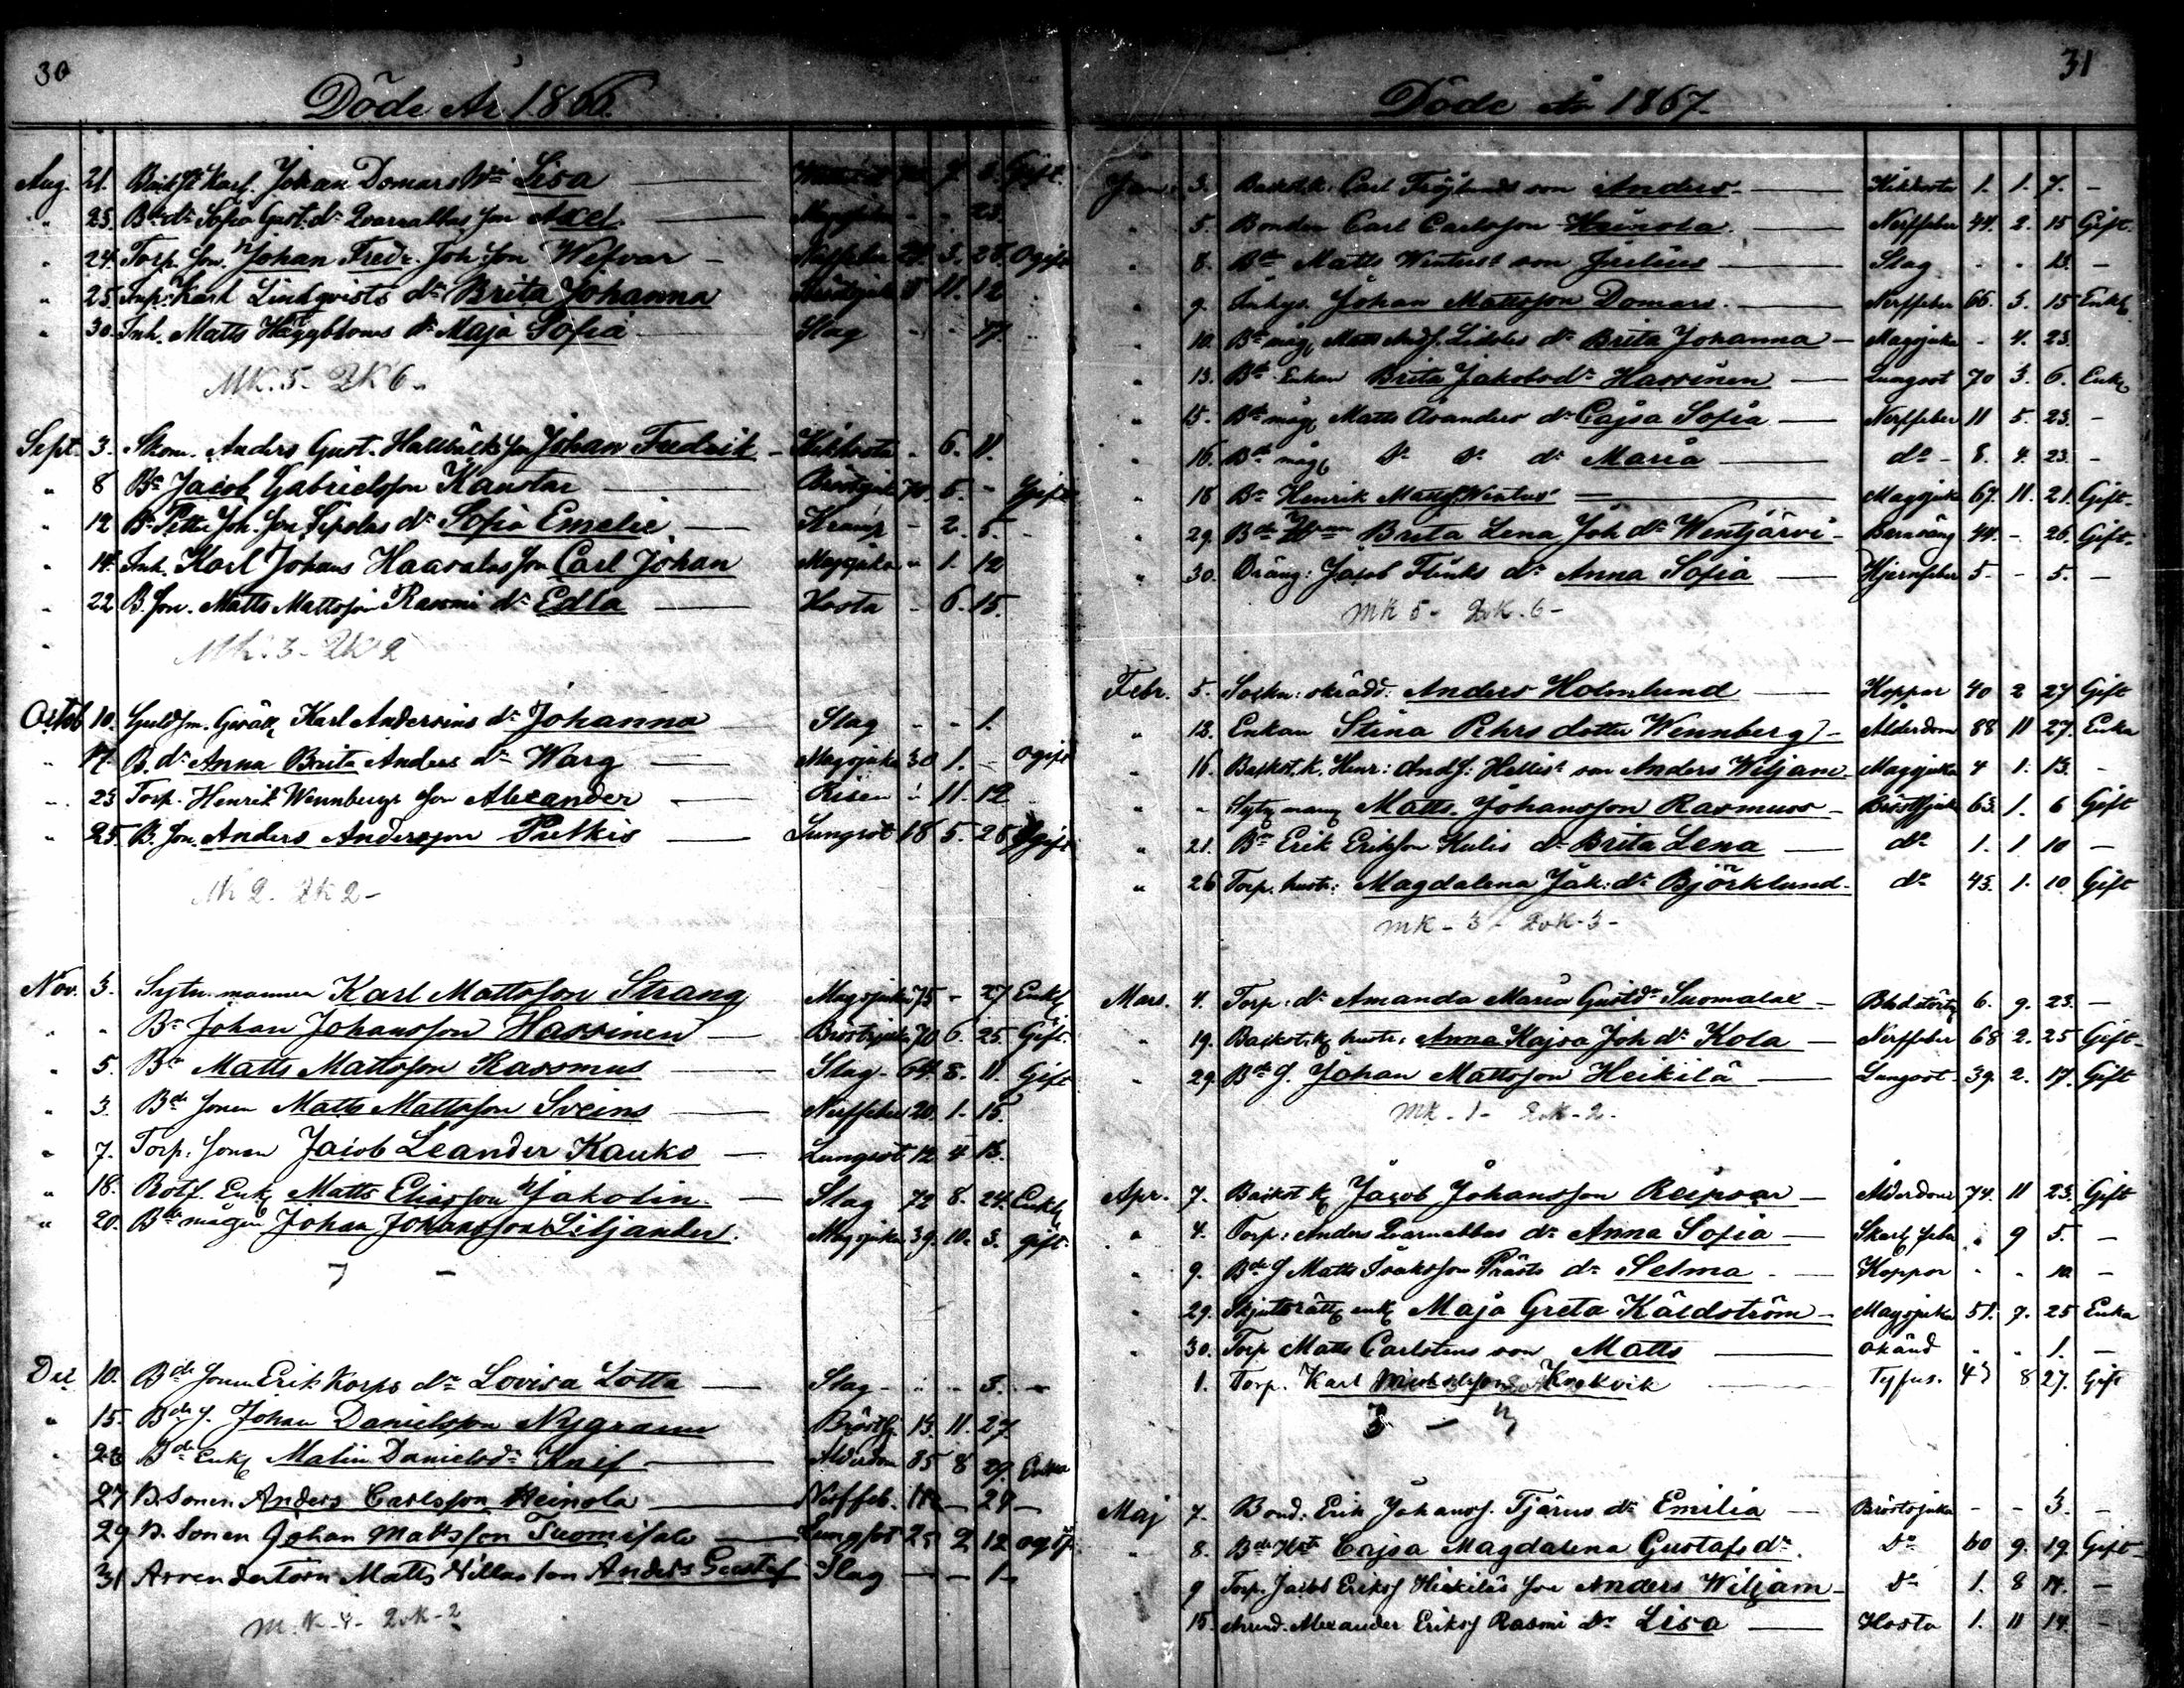 30
Döde År 1866.
Aug. 21. Johan Domars Lisa Gift
" 23. Bde dr Sofia Gust. dr Qvarnabbas son Axel Magsjuka - - 23.
" 24. Torp. Son. Johan Fredr. Joh. Son Wefvar - 3. 28. Ogift
" 25. Karl Lindqvists dr Brita Johanna 11. 12
" 30. Inh. Matts Häggbloms dr Maja Sofia Slag - - 17.
MK. 5 - QK 6 -
Sept. 3. Skom. Anders Gust. son Johan Fredrik Kikhosta - 6. 11.
" 8 Bn Jacob Gabrielsson Kaustar Bröstsjuk 70. 5. - Gift
" 12 Bn Petter Joh. son Sipolas dr Sofia Emelie Kramp - 2. 5.
" 14. Inh. Karl Johans Haavalas son Carl Johan Magsjuka " 1. 12
" 22 B. son. Matts Mattsson Rasmi dr Edla Hosta - 6. 15.
MK. 3 - QK 2
Octob 10. Guldsm. Karl Andersins dr Johanna Slag - - 1.
" 17. B. dr Anna Brita Anders dr Warg Magsjuka 30 1. - ogift
" 23 Torp. Henrik Wennbergs son Alexander Risen " 11. 12
" 25. B. son. Anders Andersson Pulkis Lungsot 18 5. 28 Ogift
MK 2. QK 2 -
Nov. 3. Sytn. mannen Karl Mattsson Strang Magsjuka 75 - 27 Enkl
" " Bn Johan Johansson Hassinen Bröstsjuka 70 6. 25. Gift.
" 5. Bn Matts Mattsson Rasmus Slag - 64. 8. 11. Gift
" 3. Bde sonen Matts Mattsson Sveins Nerffeber 20. 1. 15.
" 7. Torp. sonen Jacob Leander Kauko Lungsot 12 4 13.
" 18. Rotf. Enkl Matts Eliasson Jakolin Slag 72 8. 24. Enkl
" 20. Bde mågen Johan Johansson Liljander. Magsjuka 39. 10. 3. gift.
7 -
Dec 10. Bde sonen Erik Korps dr Lovisa Lotta Slag - " - 3. -
" 15. Bde s. Johan Danielsson Nygrann Bröstsj. 13. 11. 27
" 23 Bde Enk Malin Danielsdr Knif Ålderdom 85 8 29. Enka
27 B. Sonen Anders Carlsson Heinola Nerffeb. - 29 -
29 B. Sonen Johan Mattsson Tuomisalo Lungsot 25 2 12 ogift
31 Arrendatorn Matts Hillas son Anders Gustaf Slag - - 1 -
M. K - 4 - QvK - 2
31
Döde år 1867.
Jan. 3. Backst.k. Carl Fröjlunds son Anders Kikhosta 1. 1. 7. -
" 5. Bonden Carl Carlsson Heinola Nerffeber 44. 2. 15 Gift.
" 8. Bde Matts son Julius Slag - - 13. -
" 9. Inhys. Johan Mattsson Domars Nerffeber 66. 3. 15 Enkl
" 10. Bde måg Matts Liddes dr Brita Johanna Magsjuka - 4. 23.
" 13. Bde Enkan Brita Jakobsdr Hassinen Lungsot 70 3. 6. Enka
" 15. Bde måg Matts Avanders dr Cajsa Sofia Nerffeber 11 5. 23. -
" 16. Bde måg dr dr dr Maria do - 8. 4. 23. -
" 18 Bn Henrik Matts. Magsjuka 67. 11. 21. Gift.
" 29. Bde Brita Lena Joh dr Wentjärvi Barnsäng 44. - 26. Gift.
" 30. Dräng: Jakob Flinks dr Anna Sofia Hjernfeber 5. - 5. -
MK 5 - QvK. 6 -
Febr. 5. Sockn: skrädd: Anders Holmlund Koppor 40 2 27 Gift
" 13. Enkan Stina Pehrs dotter Wennberg Ålderdom 88 11 27. Enka
" 16. Backst.k. Henr: And s: son Anders Wiljam Magsjuka 4 1. 13. -
" " Sytn mann Matts Johansson Rasmus Bröstsjuka 63. 1. 6 Gift
" 21. Bn Erik Eriksson Kulis dr Brita Lena do 1. 1 10 -
" 26 Torp. hustr: Magdalena Jak: dr Björklund do 43. 1. 10. Gift
MK - 3 - QvK - 3 -
Mars. 4. Torp: dr Amanda Maria Gustdr Suomalae 6. 9. 23. -
" 19. Backst.k hustr. Anna Kajsa Joh dr Kola Nerffeber 68 2. 25 Gift
" 29. Bde s. Johan Mattsson Heikilä Lungsot 39. 2. 17. Gift
MK - 1 - QvK - 2 -
Apr. 7. Backst.k Jacob Johansson Reipsar Ålderdom 74. 11 23. Gift
" 4. Torp: Anders Qvarnabbas dr Anna Sofia Skarl. feber " 9 5. -
" 9. Bde s Matts Isaksson Prästs dr Selma Koppor - - 10 -
" 29. Skjutsrätt enk Maja Greta Käldström Magsjuka 51. 7. 25 Enka
" 30. Torp Matts Carlstens son Matts okänd - - 1. -
1. Torp. Karl Krokvik Tyfus. 43 8 27. Gift
3 - 3
Maj 7. Bond. Erik Johanss. Tjärus dr Emilia Bröstsjuka - - 3. -
" 8. Bde Hst Cajsa Magdalena Gustafs dr Do 60 9. 19. Gift
" 9 Torp. Jacob Erikss Heikiläs son Anders Wiljam Do 1. 8 14. -
" 15. Alexander Erikss Rasmi dr Lisa Hosta 1. 11 14. -